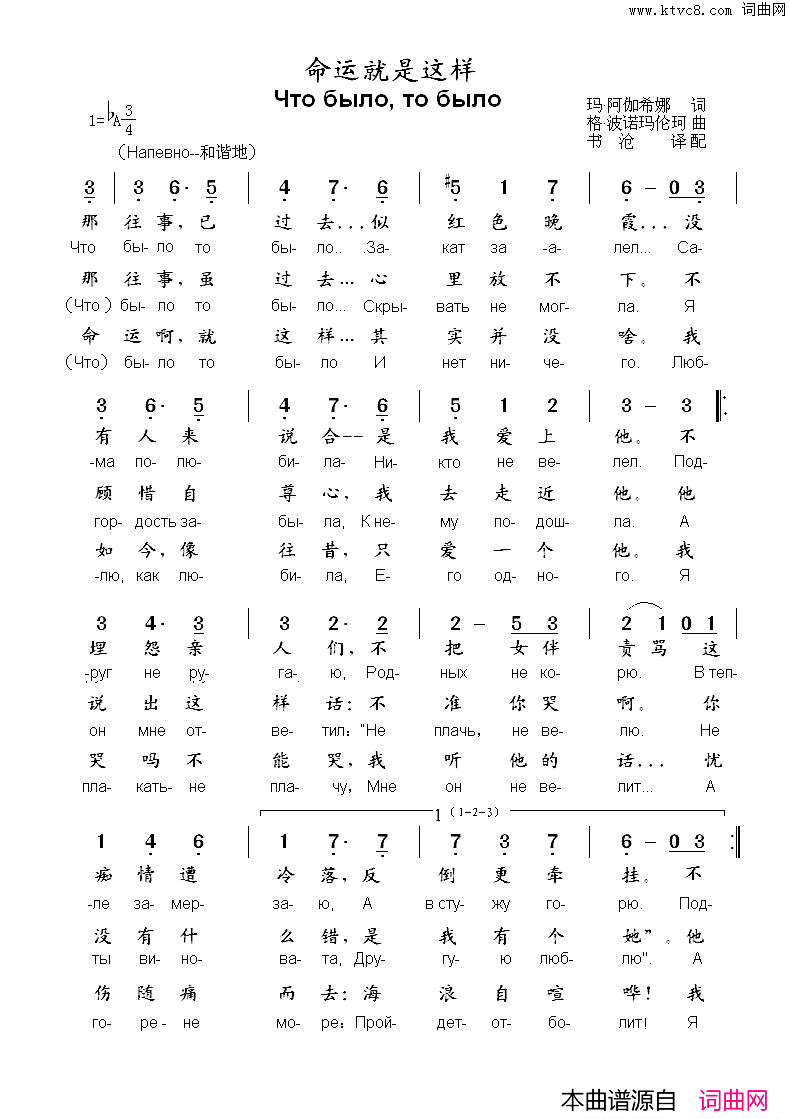 www.ktvc8.com 词曲网
命运就是这样
Что было, то было
1=♭A 3/4
玛·阿伽希娜 词
格·波诺玛伦珂 曲
书沧 译配
（Напевно--和谐地）
3 | 3 6· 5 | 4 7· 6 | #5 1 7 | 6 – 0 3 |
那 往 事, 已 过 去... 似 红 色 晚 霞... 没
Что бы- ло то бы- ло.. За- кат за -а- лел... Са-
那 往 事, 虽 过 去... 心 里 放 不 下。 不
(Что ) бы- ло то бы- ло... Скры- вать не мог- ла. Я
命 运 啊, 就 这 样... 其 实 并 没 啥。 我
(Что) бы- ло то бы- ло И нет ни- че- го. Люб-
3 6· 5 | 4 7· 6 | 5 1 2 | 3 – 3 :
有 人 来 说 合-- 是 我 爱 上 他。 不
-ма по- лю- би- ла- Ни- кто не ве- лел. Под-
顾 惜 自 尊 心, 我 去 走 近 他。 他
гор- дость за- бы- ла, К не- му по- дош- ла. А
如 今, 像 往 昔, 只 爱 一 个 他。 我
-лю, как лю- би- ла, Е- го од- но- го. Я
3 4· 3 | 3 2· 2 | 2 – 5 3 | 2 1 0 1 |
埋 怨 亲 人 们, 不 把 女 伴 责 骂 这
-руг не ру- га- ю, Род- ных не ко- рю. В теп-
说 出 这 样 话: 不 准 你 哭 啊。 你
он мне от- ве- тил: "Не плачь, не ве- лю. Не
哭 吗 不 能 哭, 我 听 他 的 话... 忧
пла- кать- не пла- чу, Мне он не ве- лит... А
1 (1-2-3)
1 4 6 | 1 7· 7 | 7 3 7 | 6 – 0 3 :
痴 情 遭 冷 落, 反 倒 更 牵 挂。 不
-ле за- мер- за- ю, А в сту- жу го- рю. Под-
没 有 什 么 错, 是 我 有 个 她”。 他
ты ви- но- ва- та, Дру- гу- ю люб- лю". А
伤 随 痛 而 去: 海 浪 自 喧 哗! 我
го- ре- не мо- ре: Прой- дет- от- бо- лит! Я
本曲谱源自 词曲网